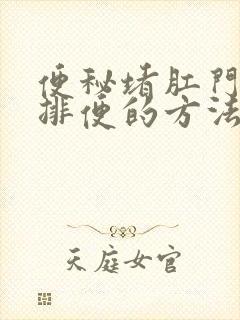 便秘堵肛門
排便的方法
天庭女官